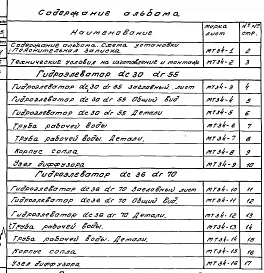 Содержание альбома
Наименование марка лист №№ стр.
Содержание альбома. Схема установки
Пояснительная записка МТЭ4-1 2
Технические условия на изготовление и монтаж МТЭ4-2 3
Гидроэлеватор dс 30 dг 55
Гидроэлеватор dс 30 dг 55 Заглавный лист МТЭ4-3 4
Гидроэлеватор dс 30 dг 55 Общий вид МТЭ4-4 5
Гидроэлеватор dс 30 dг 55 Детали МТЭ4-5 6
Труба рабочей воды МТЭ4-6 7
Труба рабочей воды Детали МТЭ4-7 8
Корпус сопла МТЭ4-8 9
Узел диффузора МТЭ4-9 10
Гидроэлеватор dс 36 dг 70
Гидроэлеватор dс 36 dг 70 Заглавный лист МТЭ4-10 11
Гидроэлеватор dс 36 dг 70 Общий вид. МТЭ4-11 12
Гидроэлеватор dс 36 dг 70 Детали. МТЭ4-12 13
Труба рабочей воды. МТЭ4-13 14
Труба рабочей воды. Детали. МТЭ4-14 15
Корпус сопла МТЭ4-15 16
Узел диффузора МТЭ4-16 17